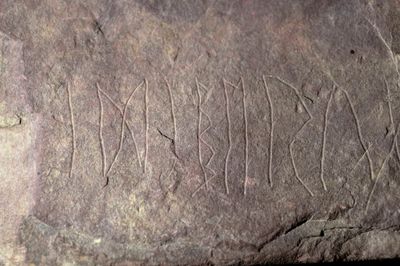 ᛁᛞᛁᛒᛖᚱᚢᚷ